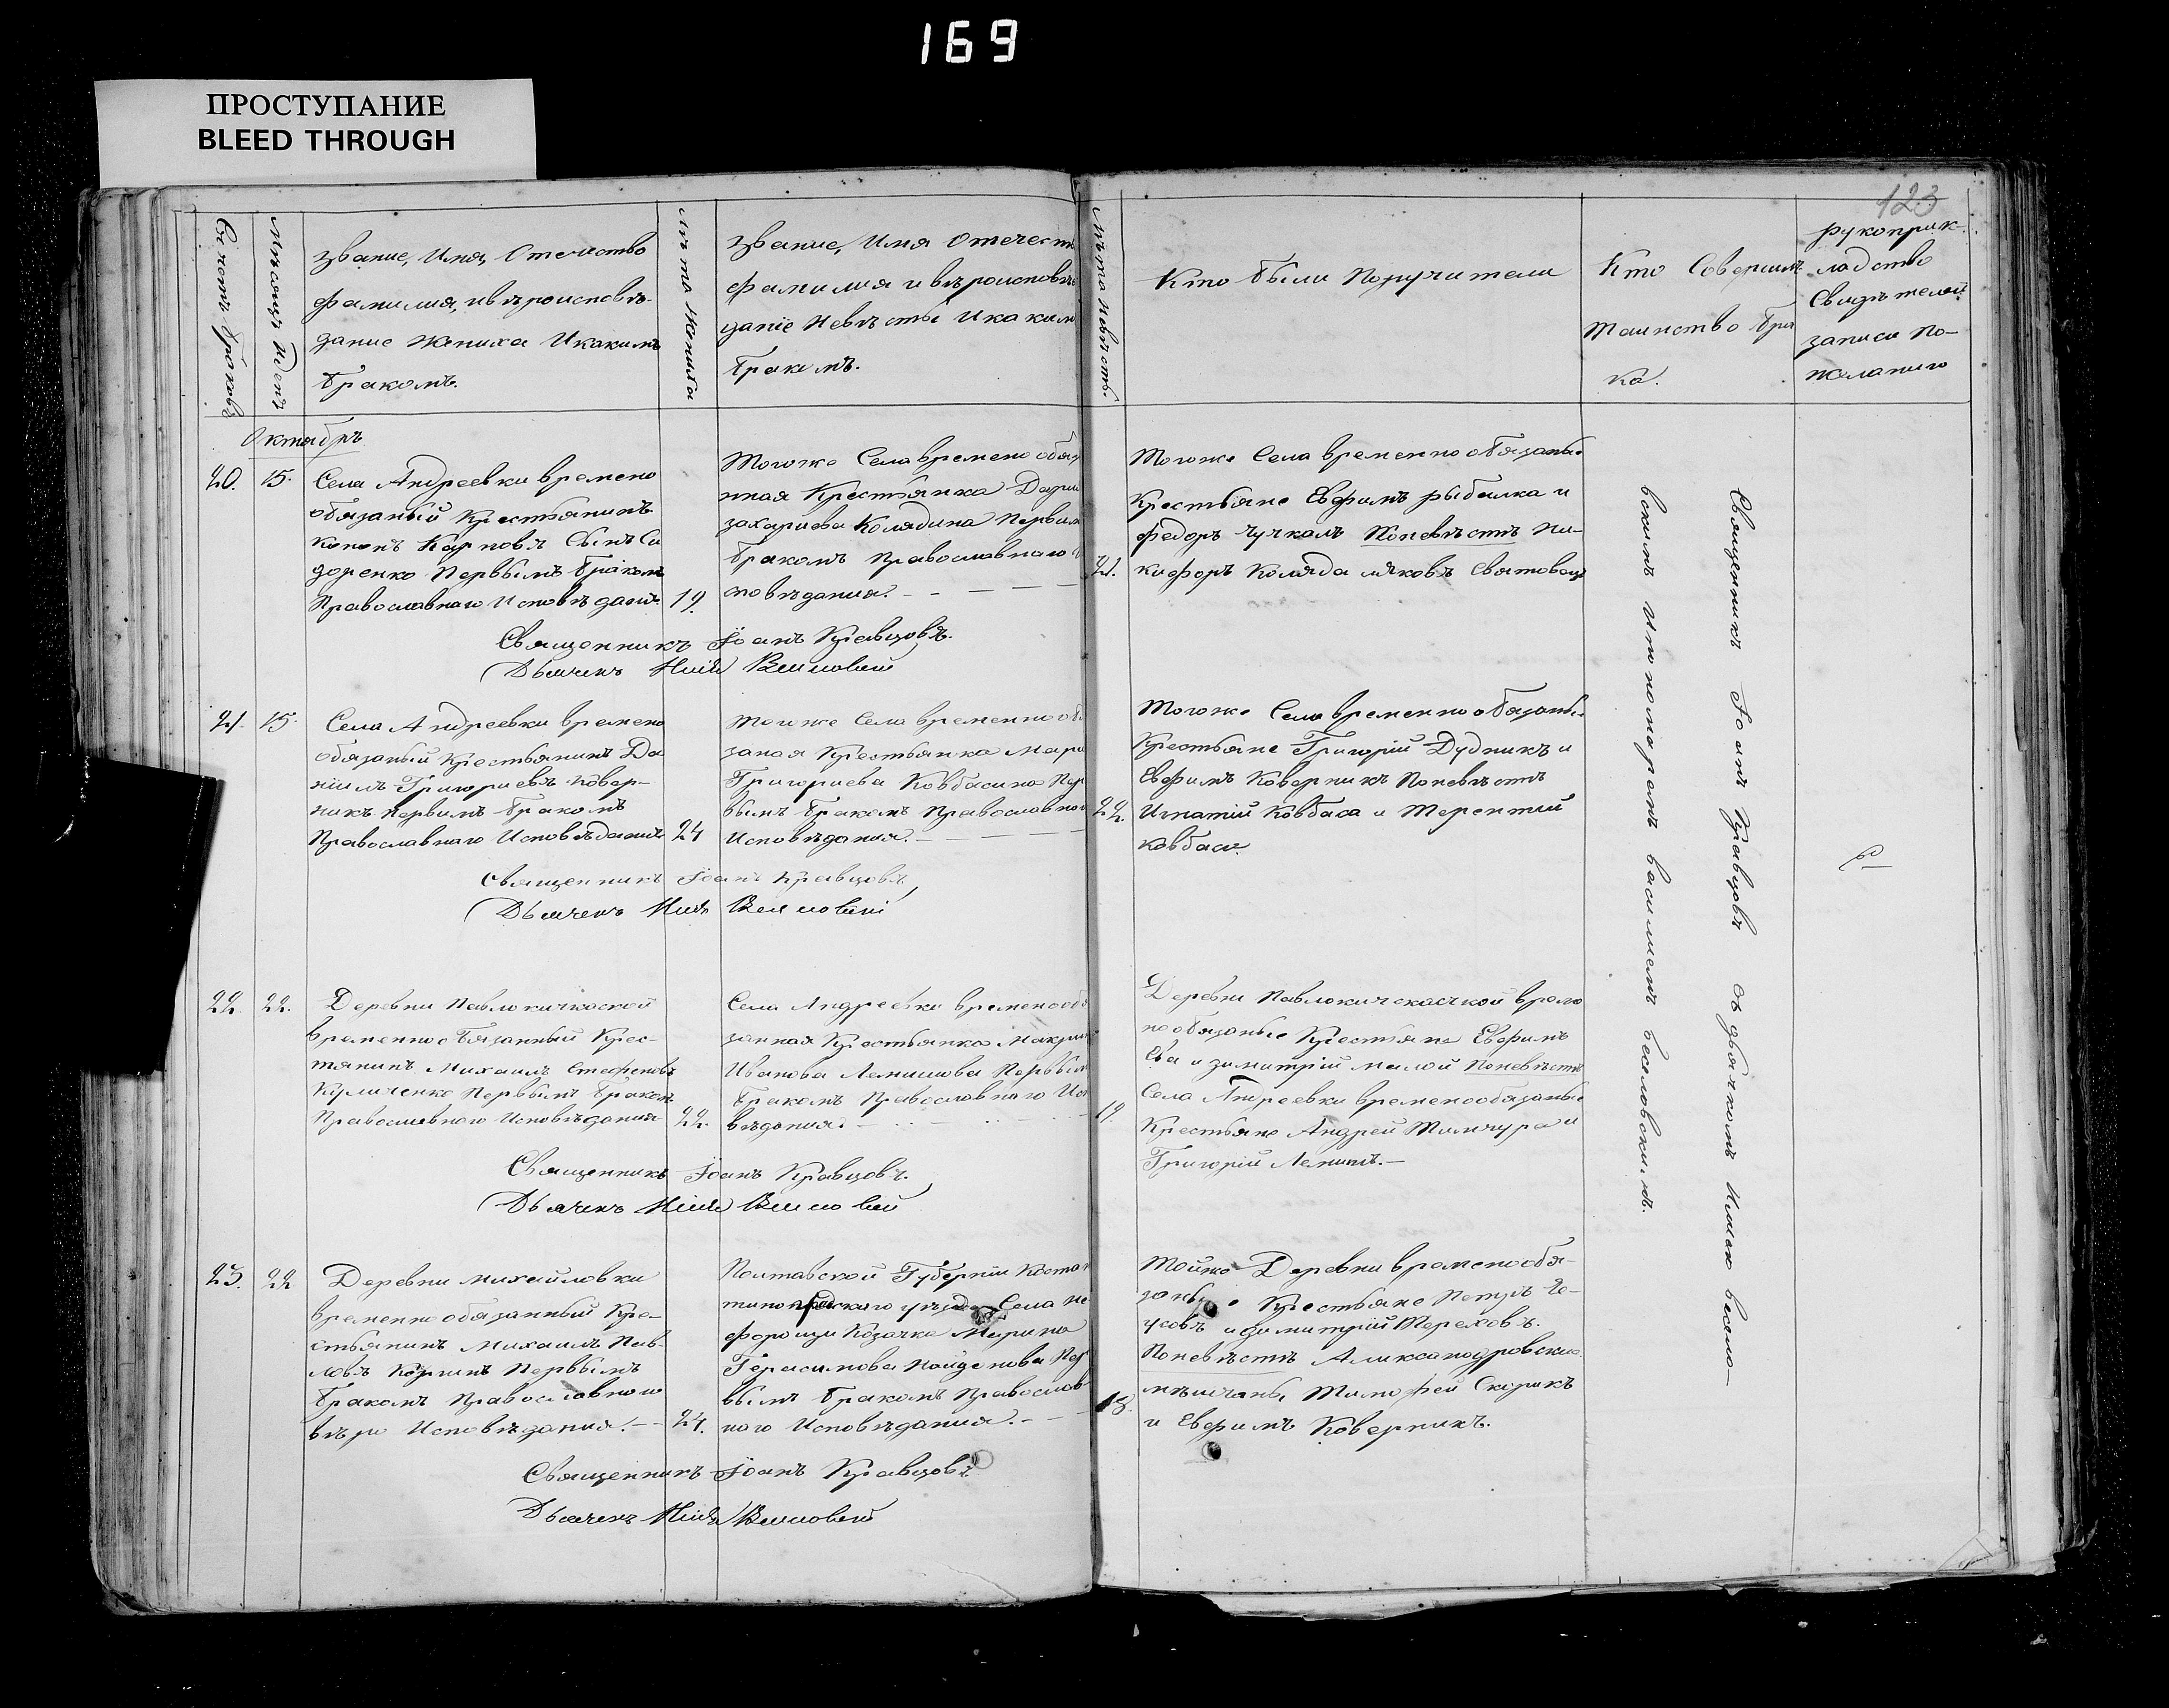 169
ПРОСТУПАНИЕ
BLEED THROUGH
123
Счетъ браковъ
Мѣсяцъ День
Звание, Имя, Отечиство
фамилия, и вѣроисповѣ-
дание Жениха И какимъ
бракомъ.
Лѣта Жениха
Звание, Имя Отечест
фамилия и вѣроисповѣ
даніе Невѣсты И каким
бракомъ.
Лѣта Невѣсты.
Кто были Поручители
Кто Совершилъ
Таинство бра
ка.
рукоприк-
ладство
Свидѣтелей
записи По-
желанию
Октябрь
20.
15.
Села Андреевки времено
обязаный Крестьянинъ
Кононъ Карповъ Сынъ Си
доренко Первымъ бракомъ
Православнаго Исповѣдания
19.
Тогоже Села времено обя
нная Крестьянка Дария
Захариева Колядина Первым
бракомъ Православнаго
повѣдания.
21.
Тогоже Села временно обязаные
Крестьяне Евфимъ рыбалка и
федоръ Чучкалъ Поневѣстѣ Ни-
кифоръ Коляда
Священникъ Іоанъ Кравцовъ.
Дьячекъ
21.
15.
Села Андреевки времено
обязаный Крестьянинъ Да
ніилъ Григориевъ Ковер-
никъ первимъ бракомъ
Православнаго Исповѣдания
24
Тогоже Села временно об
заная Крестьянка Мари
Григориева Ковбасина Пер
вымъ бракомъ Православно
Исповѣдания.
22.
Тогоже Села временно обязаные
Крестьяне Григорій Дудникъ и
Евфимъ Коверникъ Поневѣстѣ
Игнатій Ковбаса и Терентий
Ковбаса.
Священникъ Іоанъ Кравцовъ
Дьячекъ
22.
22.
Деревни Павлокичкаской
временно обязанный Крес-
тянинъ Михаилъ Стефановъ
Куличенко Первымъ бракомъ
Православнаго Исповѣдания
22.
Села Андреевки времено обя
занная Крестьянка Макрин
Иванова Лемишова Первым
бракомъ Православнаго Исп
вѣдания.
19.
Деревни Павлокичскаской време
но обязаные Крестьяне Евфимъ
и Димитрій малой Поневѣстѣ
Села Андреевки времено обязаные
Крестьяне Андрей и
Григорій Лемишъ.
Священникъ Іоанъ Кравцовъ.
Дьячекъ
23.
22
Деревни Михайловки
временно обязанный Кре-
стьянинъ Михаилъ Пав-
ловъ Первымъ
бракомъ Православнаго
вѣро Исповѣдания.
24.
Полтавской Губерніи Конста
тиноградскаго уѣзда Села Не
форощи Козачка Марина
Герасимова Найденова Пер
вымъ бракомъ Православ
наго Исповѣдания.
18.
Тойже Деревни времено обя-
заные Крестьяне Петръ Че-
и Димитрій Тереховъ.
Поневѣстѣ Александровские
мѣщаны Тимофей Скорикъ
и Евфимъ Коверникъ.
Священникъ Іоанъ Кравцовъ
Дьячекъ
Священникъ Іоанъ Кравцовъ съ дьячкомъ Илиею Весело-
вскимъ и пономаремъ Василиемъ Веселовскимъ.